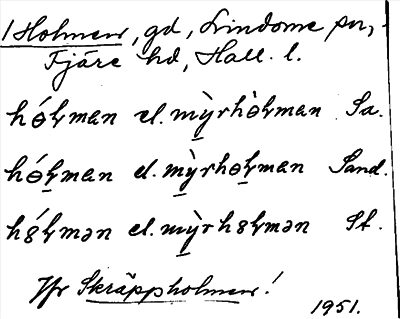 /Holmen, gd, Lindome sn,
Fjäre hd, Hall. l.
hóⱡman el. mỳ̱rhòⱡman Sa.
hó̱ⱡman el. mỳ̱rho̱ⱡman Sand.
hóⱡmən el. mỳ̱rhoⱡmən St.
Jfr Skräppholmen!
1951.